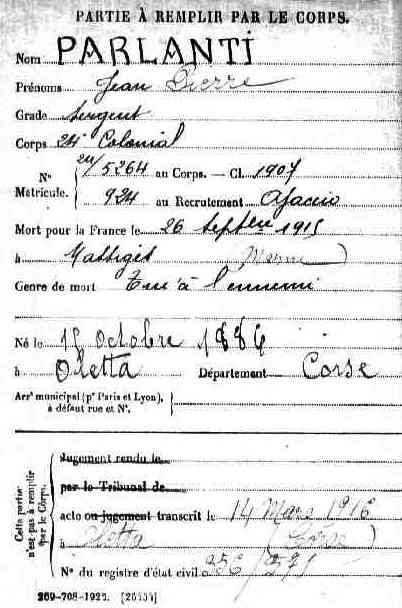 PARTIE À REMPLIR PAR LE CORPS.
Nom PARLANTI
Prénoms Jean Pierre
Grade Sergent
Corps 24e Colonial
N° Matricule. 5264 au Corps. — Cl. 1907
924 au Recrutement Ajaccio
Mort pour la France le 26 Septbre 1915
à Massiges (Marne)
Genre de mort Tué à l'ennemi
Né le 15 Octobre 1886
à Oletta Département Corse
Arrt municipal (pr Paris et Lyon), à défaut rue et N°.
Cette partie n'est pas à remplir par le Corps.
Jugement rendu le
par le Tribunal de
acte ou jugement transcrit le 14 Mars 1916
à Oletta (Corse)
N° du registre d'état civil
269-708-1922.